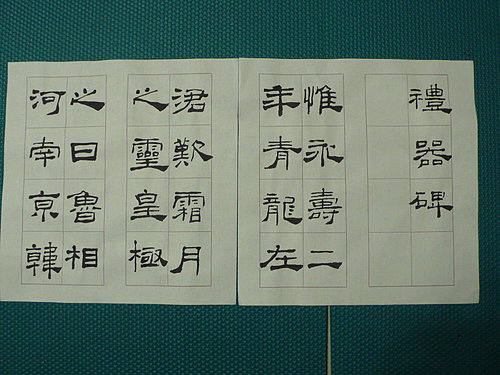 禮器碑
惟永壽二
年青龍在
涒歎霜月
之靈皇極
之日魯相
河南京韓